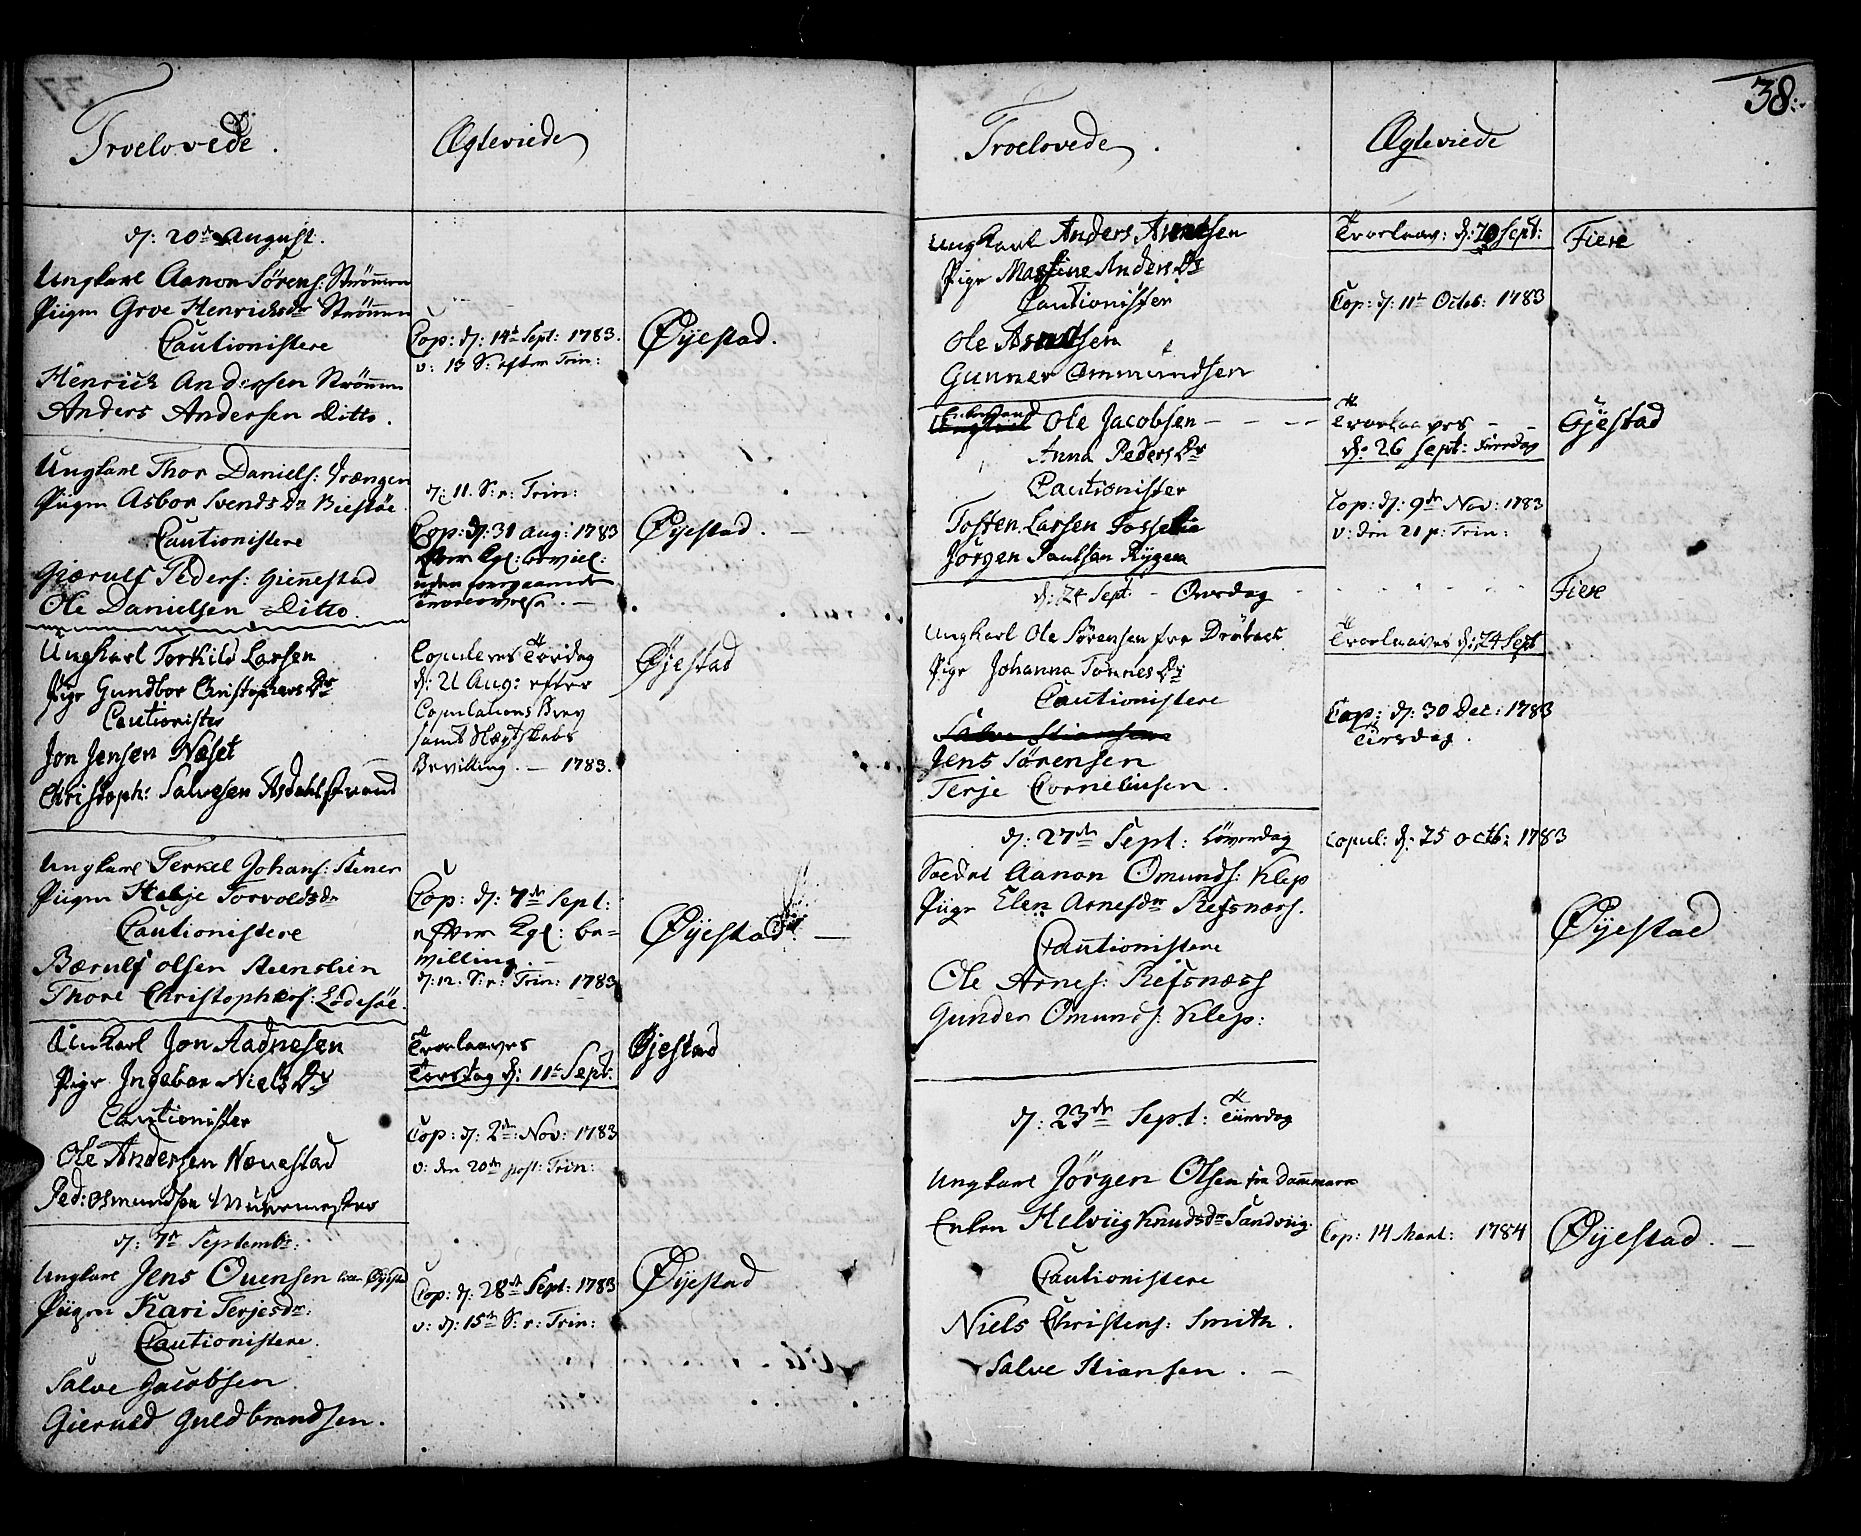 Troelovede.
Ægteviede
d: 20de August.
Ungkarl Aanon Sörens: Strömmen
Piigen Groe Henrichsdr Strömmen
Cautionistere
Henrich Andersen Strömmen
Anders Andersen Ditto.
Cop: d: 14de Sept: 1783.
v: 13 S: efter Trin:
Øÿestad.
Ungkarl Thor Daniels: Vrængen
Piigen Asbor Svends Dr Biestöe
Cautionistere
Giærulf Peders: Giennestad
Ole Danielsen Ditto.
d: 11. S: p: Trin:
Cop: d: 31 Aug: 1783
efter Kgl: beviel:
uden foregaaende
Troelovelse. —
Øÿestad. —
Ungkarl Torkild Larsen
Pige Gundbor Christophers Dr
Cautionister
Jon Jensen Næset
Christoph: Salvesen Asdahl strand
Copuleres Torsdag
d: 21 Aug: efter
Copulations Brev
samt Slægtskabs
Bevilling. — 1783.
Øjestad
Ungkarl Terkel Johans: Stener
Piigen Helje Torvoldsdr
Cautionistere
Bærulf Olsen Steenslien
Thore Christophers: Lodesöe.
Cop: d: 7de Sept:
efter Kgl: be=
villing. —
d: 12. S: p: Trin: 1783
Øÿestad. —
Ungkarl Jon Aadnesen
Pige Ingebor Niels Dr
Cautionister
Ole Andersen Næuestad
Ped: Osmundsen Muuremester
Troelaaves
Torsdag d: 11te Sept:
Cop: d: 2den Nov: 1783
v: den 20de post: Trin:
Øjestad
d: 7de Septembr:
Ungkarl Jens Ouensen
Piigen Kari Terjesdr:
Cautionistere.
Salve Jacobsen
Gieruld Guldbrandsen.
Cop: d: 28de Sept: 1783
v: d: 15de S: p: Trin:
Øÿestad
38.
Troelovede.
Ægteviede
Ungkarl Anders Arntsen
Pige Maseline Anders Dr
Cautionister
Ole Arntsen
Gunner Ommundsen
Troelaav: d: 20 Sept:
Cop: d: 11te Octob: 1783
Fiere
Enkemand Ole Jacobsen — — —
Anna Peders Dr
Cautionister
Tosten Larsen Fosselie
Jörgen Paulsen Rygene
Troelaaves — —
d: 26 Sept: Fredag
Cop: d: 9de Nov: 1783
v: din 21 p: Trin:
Øjestad
d: 24 Sept: - Onsdag
Ungkarl Ole Sörensen fra Dröbach
Pige Johanna Tönnes Dr
Cautionistere
Salve Stiansen
Jens Sörensen
Terje Corneliusen.
Troelaaves d: 24 Sept
Cop: d: 30 Dec: 1783
Tirsdag.
Fiere
d: 27de Sept: Löverdag
Soldat Aanon Omunds: Klep
Piige Elen Arnesdr Refsnæss.
Cautionistere
Ole Arnes: Refsnæss
Gunder Omunds: Klep:
Copul: d: 25 Octb: 1783
Øÿestad
d: 23de Sept: Tiirsdag
Ungkarl Jörgen Olsen fra Danmark
Enken Helviig Knudsdr Sandviig
Cautionistere
Niels Christens: Smith.
Salve Stiansen. —
Cop: 14 Mart: 1784
Øÿestad. —